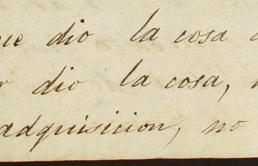 ue dio la cosa
r dio la cosa,
adquisicion, no